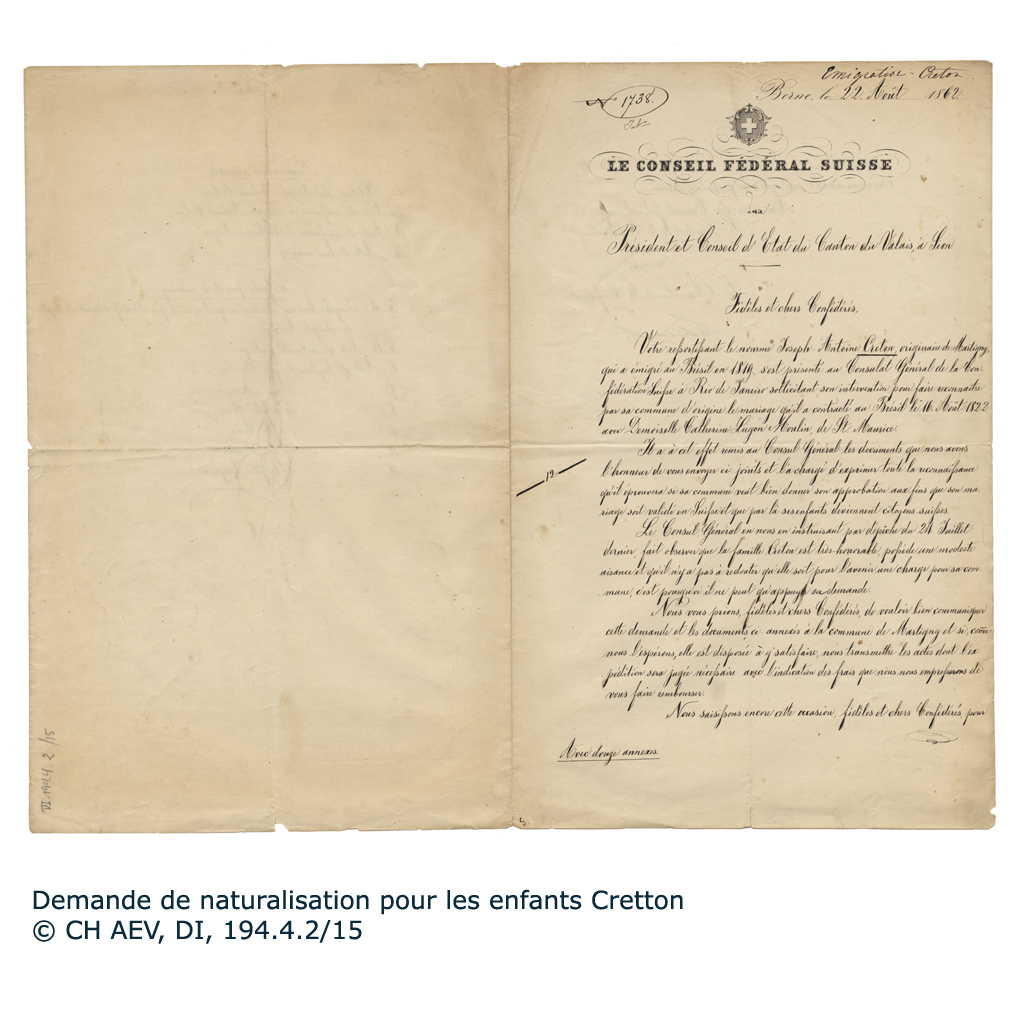 Emigration - Creton
Berne, le 22 Août 1862
N 1738.
LE CONSEIL FÉDÉRAL SUISSE
aux
Président et Conseil d'Etat du Canton du Valais, à Sion
Fidèles et chers Confédérés,
Votre ressortissant le nommé Joseph-Antoine Creton, originaire de Martigny,
qui a émigré au Brésil en 1819, s'est présenté au Consulat Général de la Con-
fédération Suisse à Rio de Janeiro sollicitant son intervention pour faire reconnaître
par sa commune d'origine le mariage qu'il a contracté au Brésil le 16 Août 1822
avec Demoiselle Catherine Lugon Moulin, de St. Maurice.
Il a à cet effet remis au Consul Général les documents que nous avons
l'honneur de vous envoyer ci-joints et l'a chargé d'exprimer toute la reconnaissance
qu'il éprouvera si sa commune veut bien donner son approbation aux fins que son ma-
riage soit valide en Suisse et que par là ses enfants deviennent citoyens suisses.
Le Consul Général en nous en instruisant par dépêche du 24 Juillet
dernier, fait observer que la famille Creton est très-honorable, possède une modeste
aisance et qu'il n'y a pas à redouter qu'elle soit pour l'avenir une charge pour sa com-
mune, c'est pourquoi il ne peut qu'appuyer sa demande.
Nous vous prions, fidèles et chers Confédérés, de vouloir bien communiquer
cette demande et les documents ci-annexés à la commune de Martigny et si, come
nous l'espérons, elle est disposée à y satisfaire, nous transmettre les actes dont l'ex-
pédition sera jugée nécessaire avec l'indication des frais que nous nous empresserons de
vous faire rembourser.
Nous saisissons encore cette occasion, fidèles et chers Confédérés, pour
12
Avec douze annexes.
DI 194.4.2/15
Demande de naturalisation pour les enfants Cretton
© CH AEV, DI, 194.4.2/15